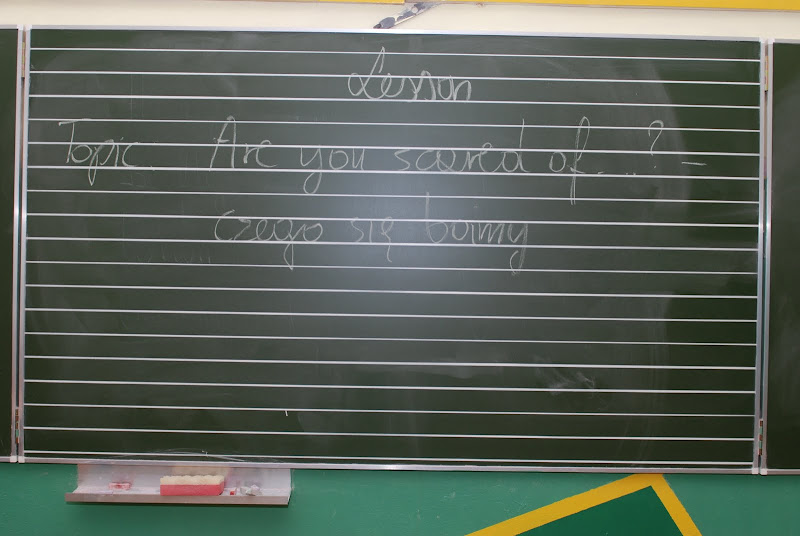 Lesson
Topic. Are you scared of....? –
czego się boimy